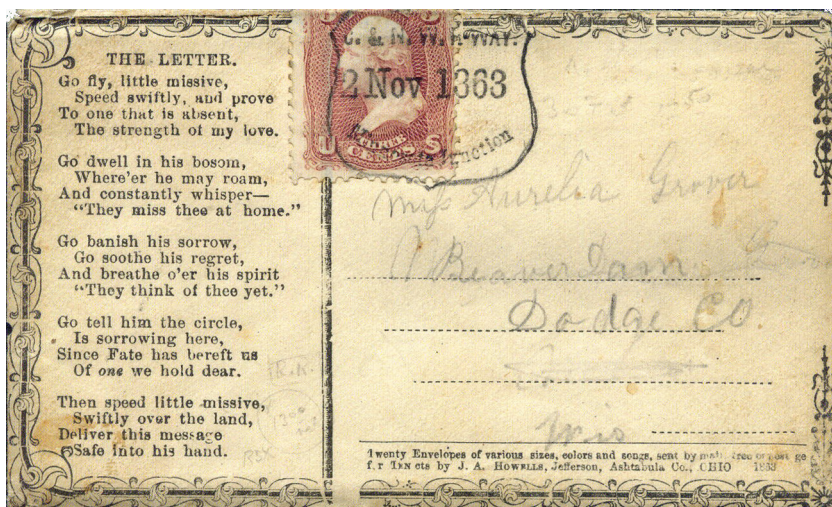 THE LETTER.
Go fly, little missive,
Speed swiftly, and prove
To one that is absent,
The strength of my love.
Go dwell in his bosom,
Where'er he may roam,
And constantly whisper—
"They miss thee at home."
Go banish his sorrow,
Go soothe his regret,
And breathe o'er his spirit
"They think of thee yet."
Go tell him the circle,
Is sorrowing here,
Since Fate has bereft us
Of one we hold dear.
Then speed little missive,
Swiftly over the land,
Deliver this message
Safe into his hand.
R.R.
C. & N. W. R-WAY.
2 Nov 1863
Junction
U S
THREE
CENTS
Miss Aurelia Grover
Beaver Dam
Dodge Co.
Wis
Twenty Envelopes of various sizes, colors and songs, sent by mail free of postage
for TEN cts by J. A. HOWELLS, Jefferson, Ashtabula Co., OHIO 1863